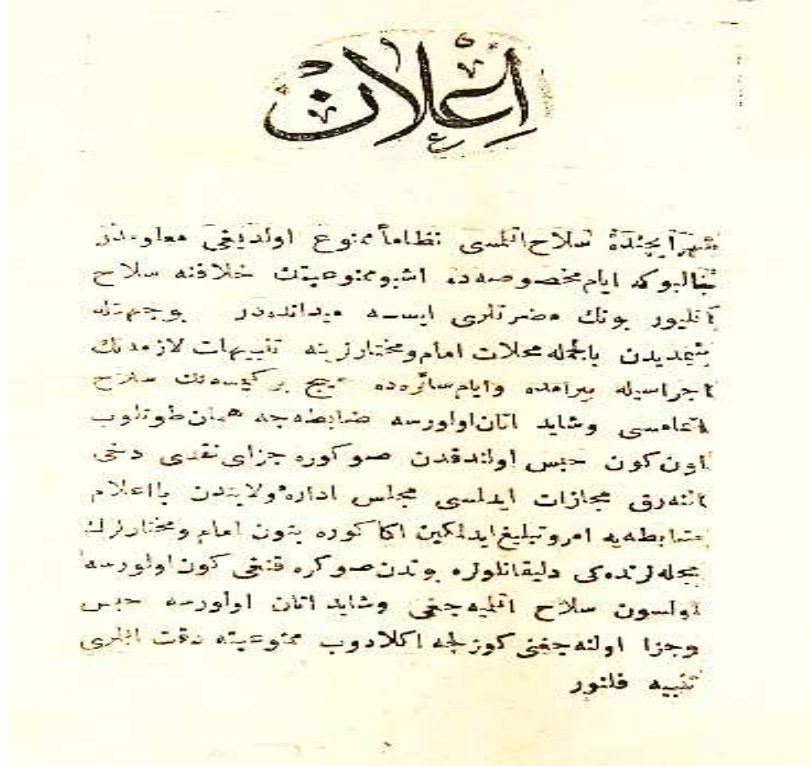 اعلان
شهر ایچنده سلاح اتلمسی نظاماً ممنوع اولدیغی معلومدر
غالبوكه ایام مخصوصه‌ده اشبو ممنوعیتك خلافنه سلاح
اتلیور بونك مضرتلری ایسه میدانده‌در بوجهتله
شیمدیدن بالجمله محلات امام و مختارلرینه تنبیهات لازمه‌نك
اجراسیله بیرامده و ایام سائره‌ده هیچ بر كیمسه‌نك سلاح
اتمامسی وشاید اتان اولورسه ضابطه‌جه همان طوتلوب
اون كون حبس اولندقدن صوكره جزای نقدی دخی
النه‌رق مجازات ایدلسی مجلس ادارهٔ ولایتدن بااعلام
ضابطه‌یه امر و تبلیغ ایدلمكین اكا كوره بتون امام و مختارلرك
محله‌لرنده‌كی دلیقانلولره بوندن صوكره قنغی كون اولورسه
اولسون سلاح اتلمیه‌جغی وشاید اتان اولورسه حبس
وجزا اولنه‌جغنی كوزلجه اكلادوب ممنوعیته دقت ایتلری
تنبیه قلنور